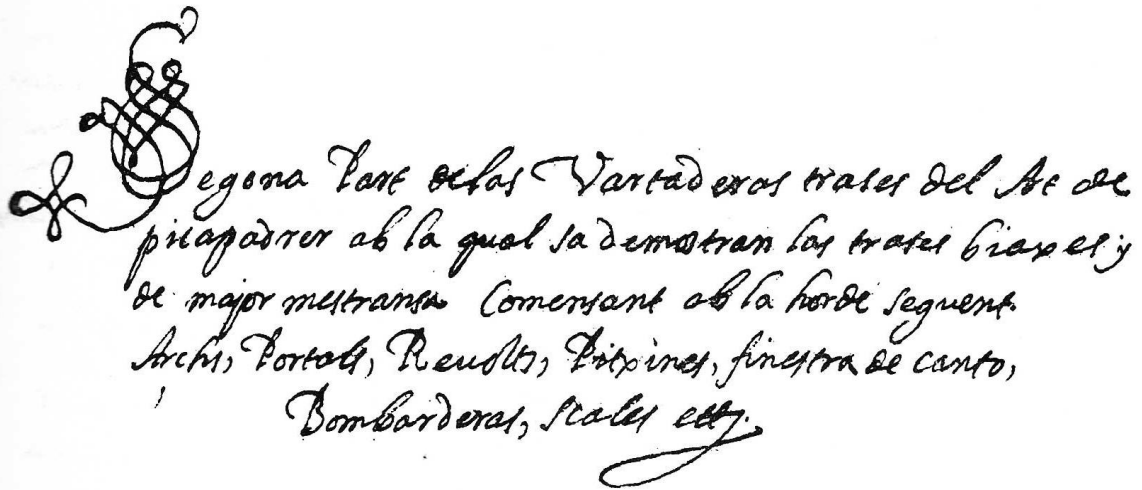 Segona Part de las Vartaderas trases del Art de
picapadrer ab la qual sa demostran las trases biaxes y
de major mestransa Comensant ab la horde seguent.
Archs, Portals, Revolts, Pitxines, finestra de canto,
Bombarderas, scales ettz.